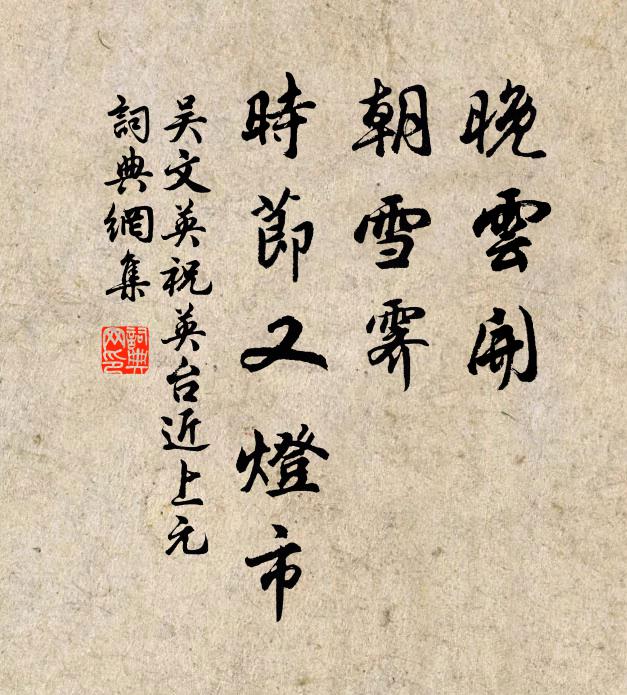 晚雲開
朝雪霽
時節又燈市
吴文英祝英台近上元
詞典網集
詞典網印